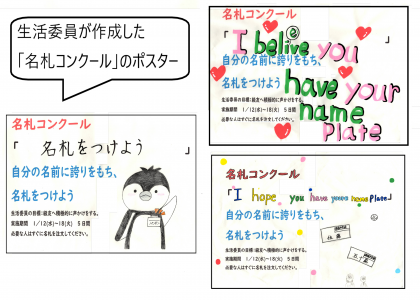 生活委員が作成した
「名札コンクール」のポスター
名札コンクール
「 名札をつけよう 」
自分の名前に誇りをもち、
名札をつけよう
生活委員の目標:級友へ積極的に声かけをする。
実施期間 1/12(水)~18(火) 5日間
必要な人はすぐに名札を注文してください。
名札コンクール
「I belive you
have your
name
Plate
」
自分の名前に誇りをもち、
名札をつけよう
生活委員の目標:級友へ積極的に声かけをする。
実施期間 1/12(水)~18(火) 5日間
必要な人はすぐに名札を注文してください。
名札コンクール
「I hope you have youre name Plate」
自分の名前に誇りをもち、
名札をつけよう
生活委員の目標:級友へ積極的に声かけをする。
実施期間 1/12(水)~18(火) 5日間
必要な人はすぐに名札を注文してください。